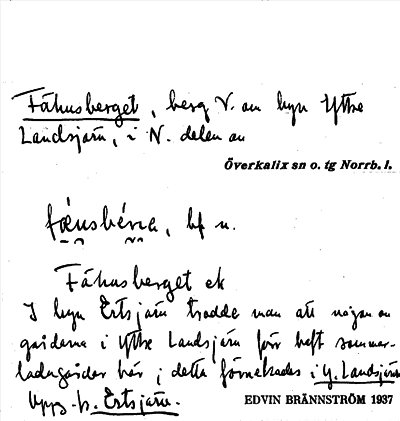 Fähusberget, berg V. om byn Yttre
Landsjärv, i N. delen av
Överkalix sn o. tg Norrb. l.
bf n.
Fähusberget ek
I byn Ertsjärv trodde man att någon av
gårdarna i Yttre Landsjärv förr haft sommar-
ladugårdar här; detta förnekades i Y. Landsjärv
Uppg. fr. Ertsjärv.
EDVIN BRÄNNSTRÖM 1937